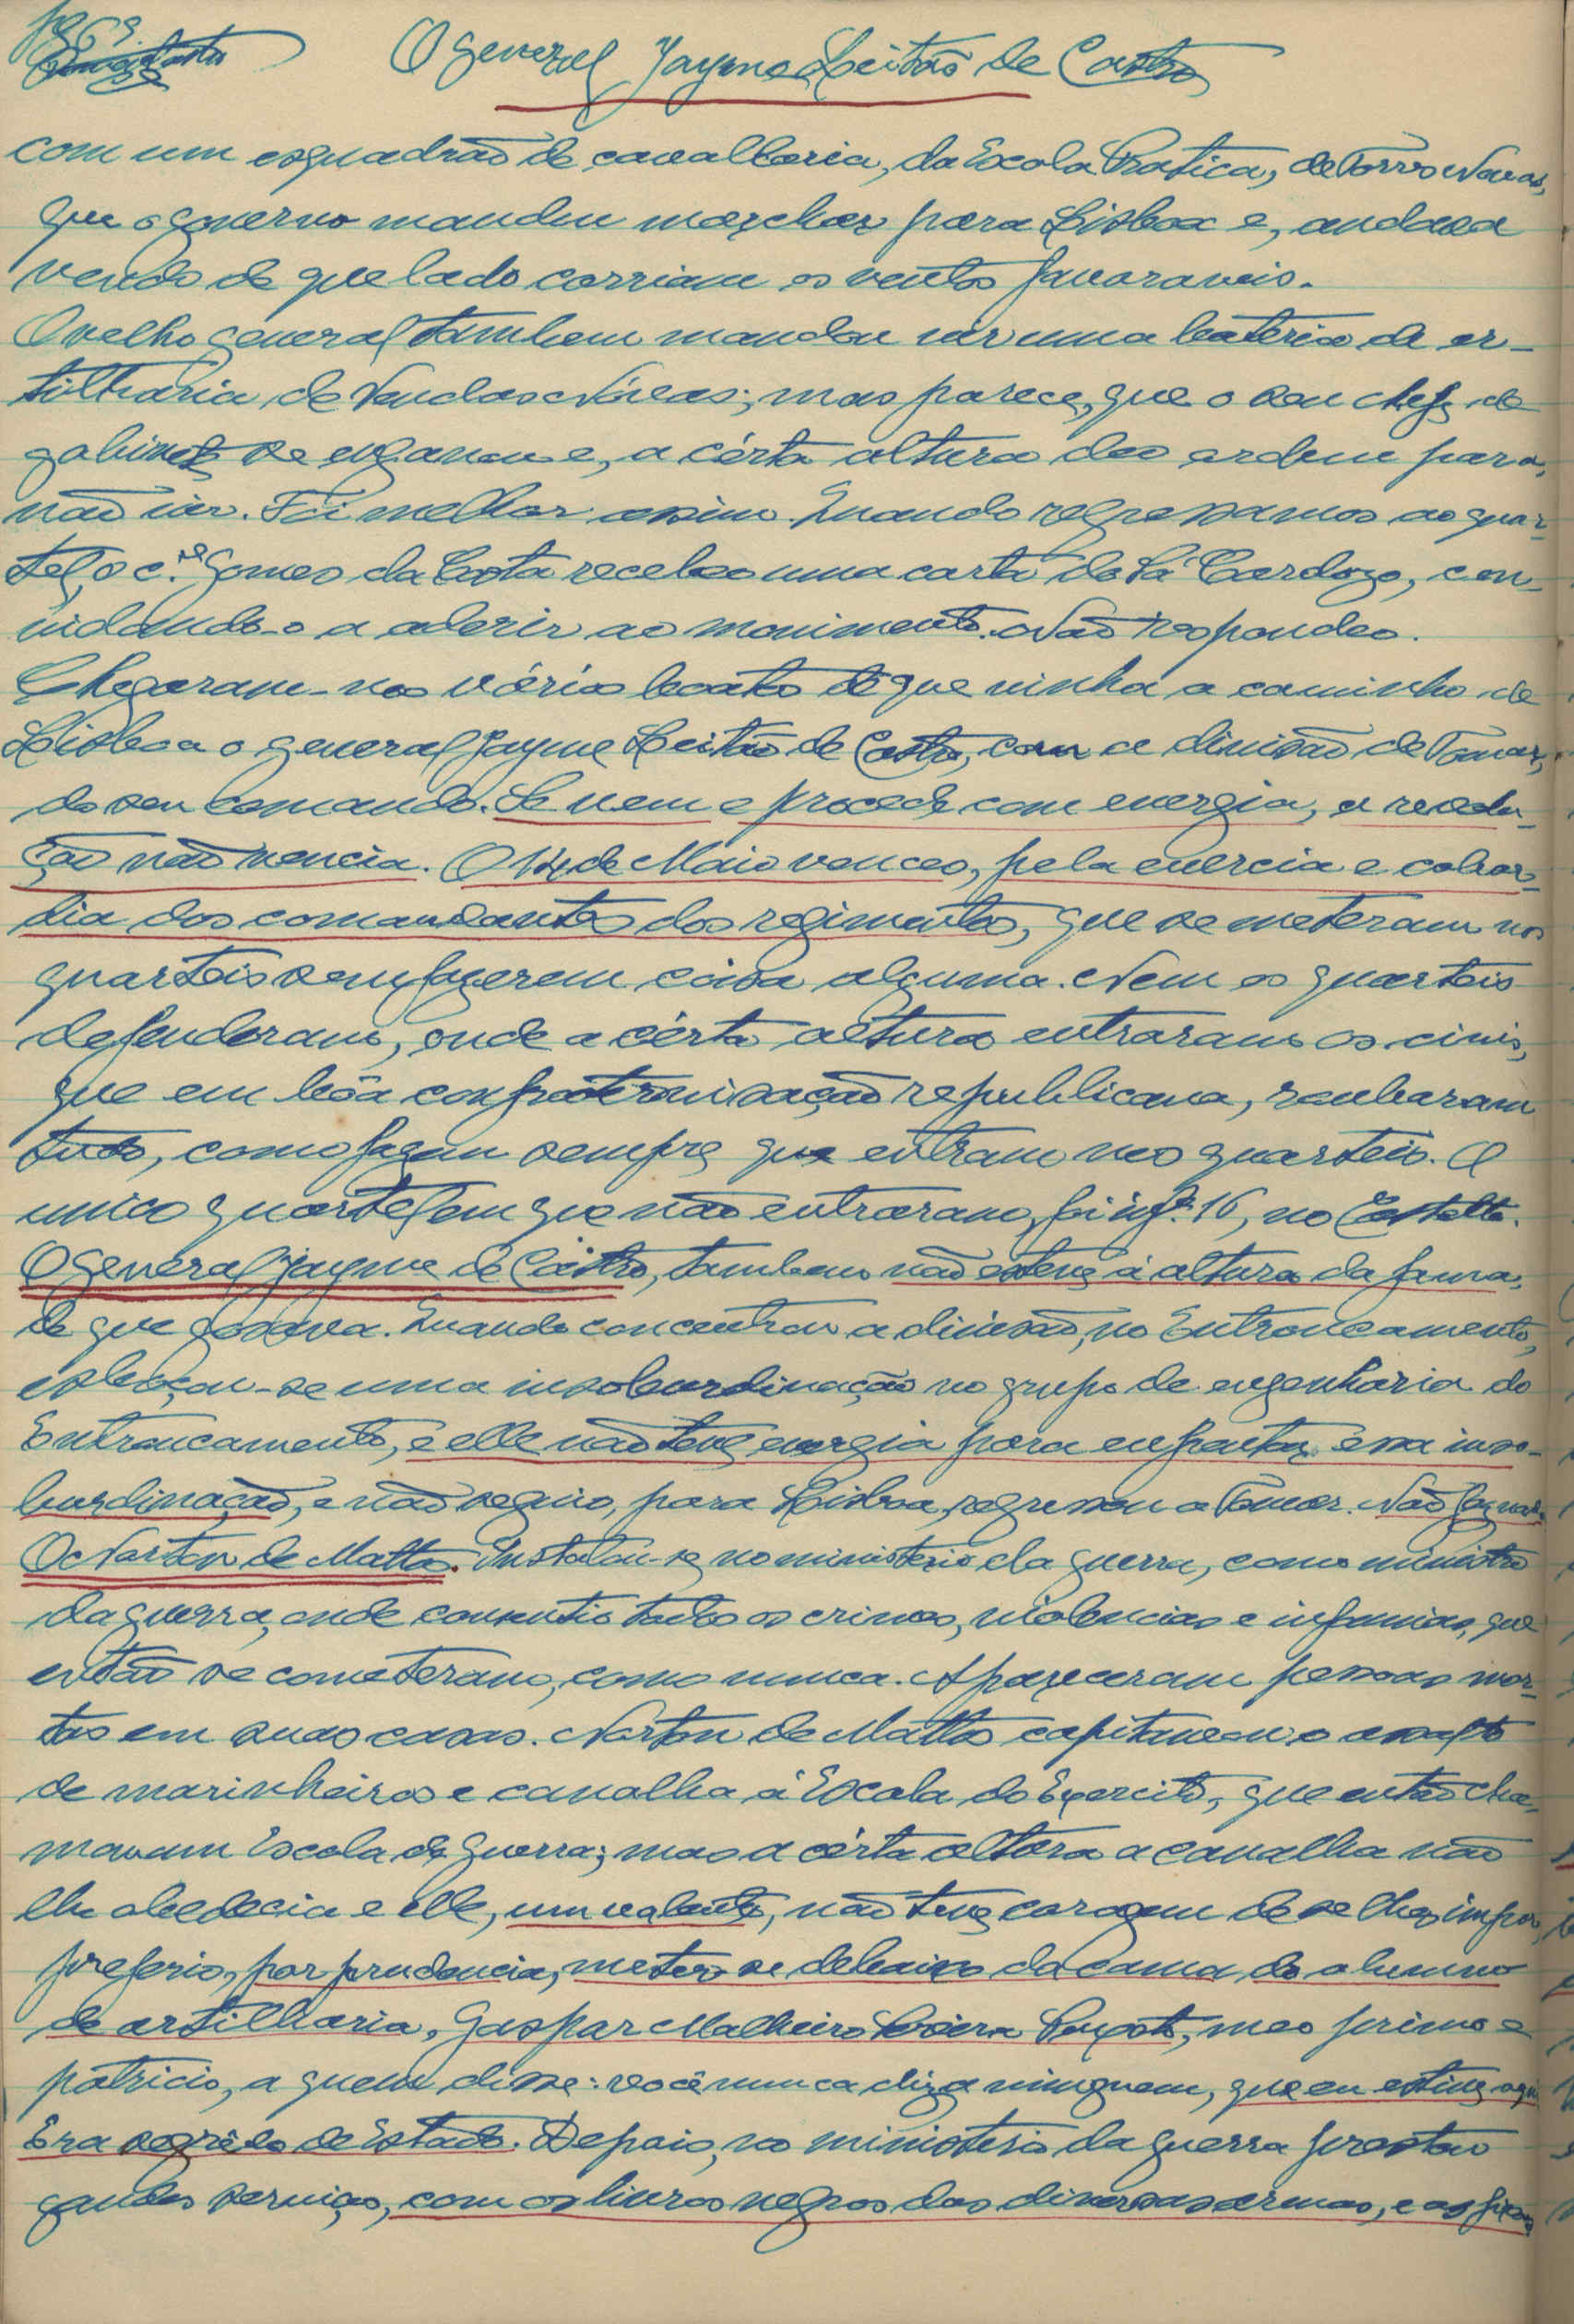 O general Jayme Leitão de Castro
com um esquadrão de cavallaria, da Escola Pratica, de Torres Novas,
que o governo mandou marchar para Lisboa e, andava
vendo de que lado corriam os ventos favoraveis.
O velho general tambem mandou vir uma bateria de ar-
tilharia de Vendas Novas; mas parece, que o seu chefe de
gabinete se enganou e, a cérta altura deo ordem para,
não vir. Foi melhor assim. Quando regressamos ao quar-
tel, o c.el Gomes da Costa recebeo uma carta do Sá Cardozo, con-
vidando-o a aderir ao movimento. Não respondeo.
Chegaram-nos vários boatos de que vinha a caminho de
Lisboa o general Jayme Leitão de Castro, com a divisão de Tomar,
do seu comando. Se vem e procede com energia, a revolu-
ção não vencia. O 14 de Maio venceo, pela enercia e cobar-
dia dos comandantes dos regimentos, que se meteram nos
quarteis sem fazerem coisa alguma. Nem os quarteis
defenderam, onde a cérta altura entraram os civis,
que em bôa confraternisação republicana, roubaram
tudo, como fazem sempre que entram nos quarteis. O
unico quartel em que não entraram, foi inf.ª 16, no Castello.
O general Jayme de Castro, tambem não esteve á altura da fama,
de que gosava. Quando concentrou a divisão, no Entroncamento,
esboçou-se uma insobordinação no grupo de engenharia do
Entroncamento, e elle não teve energia para enfrentar éssa inso-
burdinação, e não seguio, para Lisboa, regressou a Tomar. Não
O Norton de Mattos. Instalou-se no ministerio da guerra, como ministro
da guerra, onde consentio todos os crimes, violencias e infamias, que
então se cometeram, como nunca. Apareceram pessoas mor-
tas em suas casas. Norton de Mattos capitaneou o assalto
de marinheiros e canalha á Escola do Exercito, que então cha-
mavam Escola de Guerra; mas a cérta altura a canalha não
lhe obedecia e elle, um valente, não teve coragem de se lhes impor,
preferio, por prudencia, meter-se debaixo da cama do alumno
de artilharia, Gaspar Malheiro Pereira Peixoto, meo primo e
patricio, a quem disse: você nunca diga a ninguem, que eu estive aqui
Era segrêdo de Estado. Depois, no ministerio da guerra prestou
grandes serviços, com os livros negros das diversas armas, e as